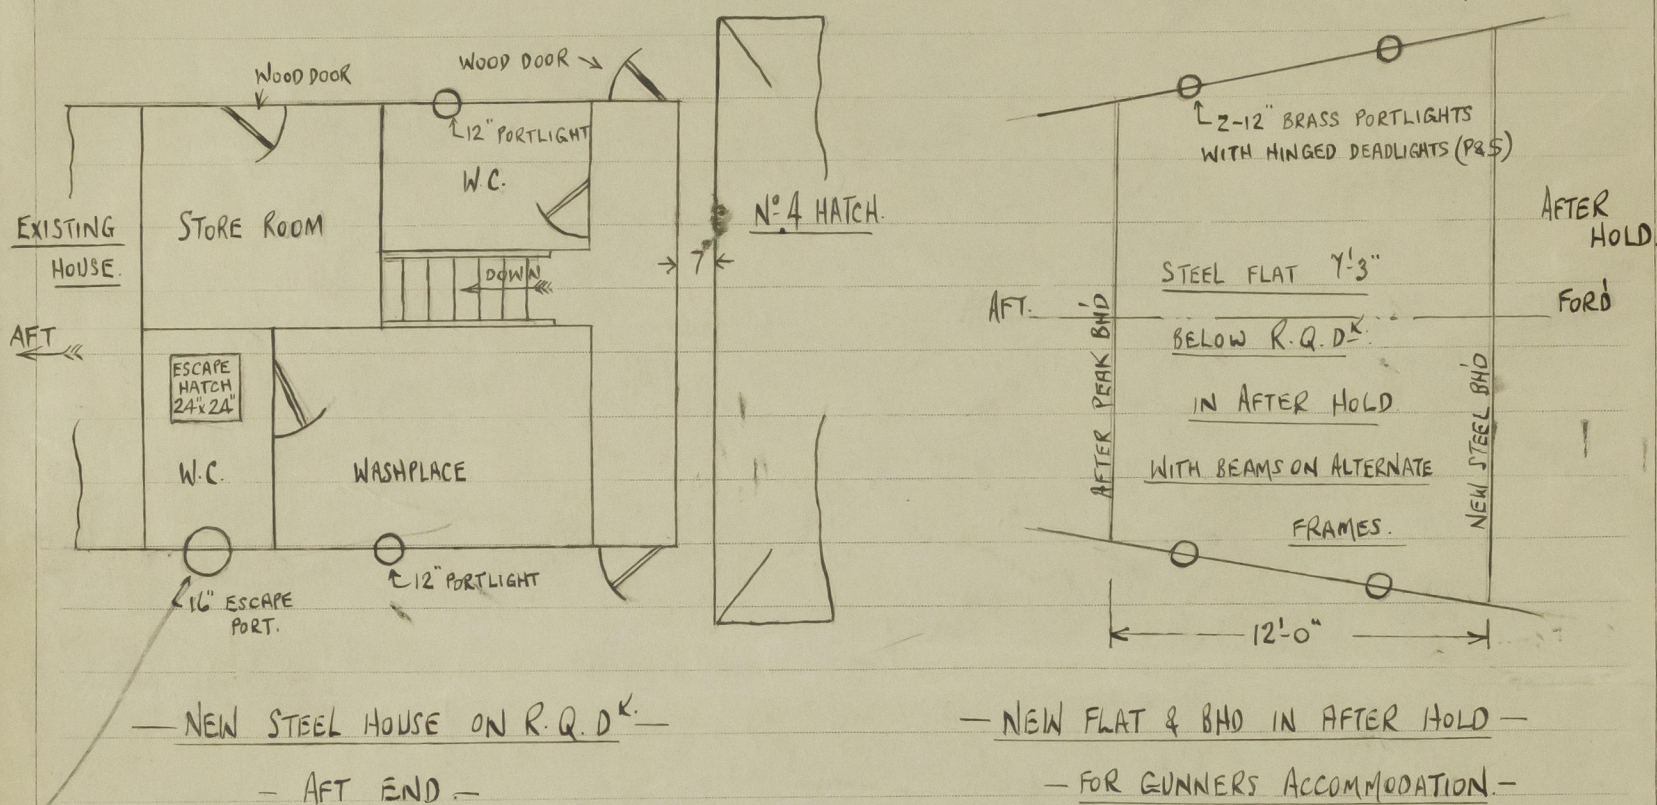 WOOD DOOR
WOOD DOOR
12" PORTLIGHT
W.C.
STORE ROOM
EXISTING
HOUSE.
DOWN
7'
Nº 4 HATCH.
AFT
ESCAPE
HATCH
24"x24"
W.C.
WASHPLACE
12" PORTLIGHT
16" ESCAPE
PORT.
— NEW STEEL HOUSE ON R.Q.Dᴷ. —
— AFT END —
2-12" BRASS PORTLIGHTS
WITH HINGED DEADLIGHTS (P&S)
AFTER
HOLD
STEEL FLAT 7'-3"
AFT.
FOR'D
BELOW R.Q.Dᴷ.
IN AFTER HOLD
WITH BEAMS ON ALTERNATE
FRAMES.
AFTER PEAK BH'D
NEW STEEL BH'D
12'-0"
— NEW FLAT & BHD IN AFTER HOLD —
— FOR GUNNERS ACCOMMODATION. —